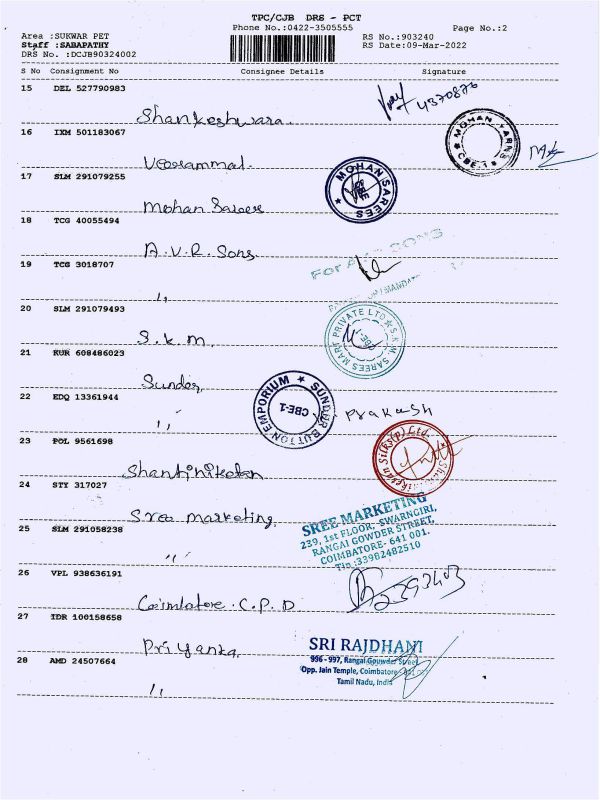 TPC/CJB DRS - PCT
Phone No.:0422-3505555 Page No.:2
Area :SUKWAR PET RS No.:903240
Staff :SABAPATHY RS Date:09-Mar-2022
DRS No. :DCJB90324002
S No Consignment No Consignee Details Signature
15 DEL 527790983
Shankeshwara 4370876
16 IXM 501183067
MOHAN YARNS CBE-1
Veerammal
17 SLM 291079255
MOHAN SAREES
Mohan Sarees
18 TCG 40055494
A.V.R. Sons
19 TCG 3018707
For SONS
,,
20 SLM 291079493
S.K.M. SAREES MARK PRIVATE LTD CBE
S.k.m.
21 KUR 608486023
Sunder
22 EDQ 13361944
SUNDUR BUTTON EMPORIUM CBE-1
,, Prakash
23 POL 9561698
Silks(p) Ltd.
Shantiniketan
24 STY 317027
SREE MARKETING
Sree marketing
239, 1st FLOOR, SWARNGIRI,
RANGAI GOWDER STREET,
25 SLM 291058238
COIMBATORE- 641 001.
Tin:33982482510
,,
26 VPL 938636191
Coimbatore.C.P.D
27 IDR 100158658
SRI RAJDHANI
Priyanka
996 - 997, Rangai Gouwder Street,
28 AMD 24507664
Opp. Jain Temple, Coimbatore
Tamil Nadu, India
,,